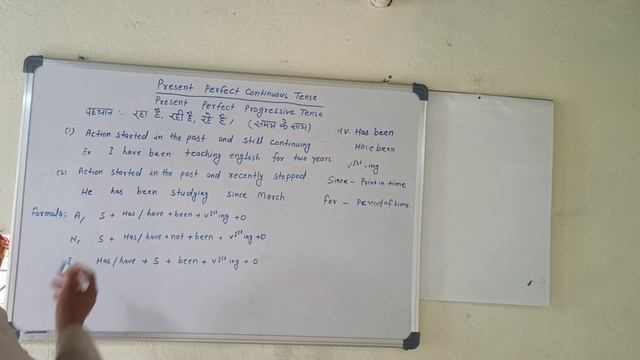 Present Perfect Continuous Tense
Present Perfect Progressive Tense
पहचान :- रहा है, रही है, रहे हैं, (समय के साथ)
H.V. Has been
Have been
(1) Action started in the past and still continuing.
Ex I have been teaching english for two years.
V1st-ing
(2) Action started in the past and recently stopped.
Since - Point in time
He has been studying since March
For - Period of time.
Formula:- A, S + Has/have + been + V1st ing + O
N, S + Has/have + not + been + V1st ing + O
I Has/have + S + been + V1st ing + O